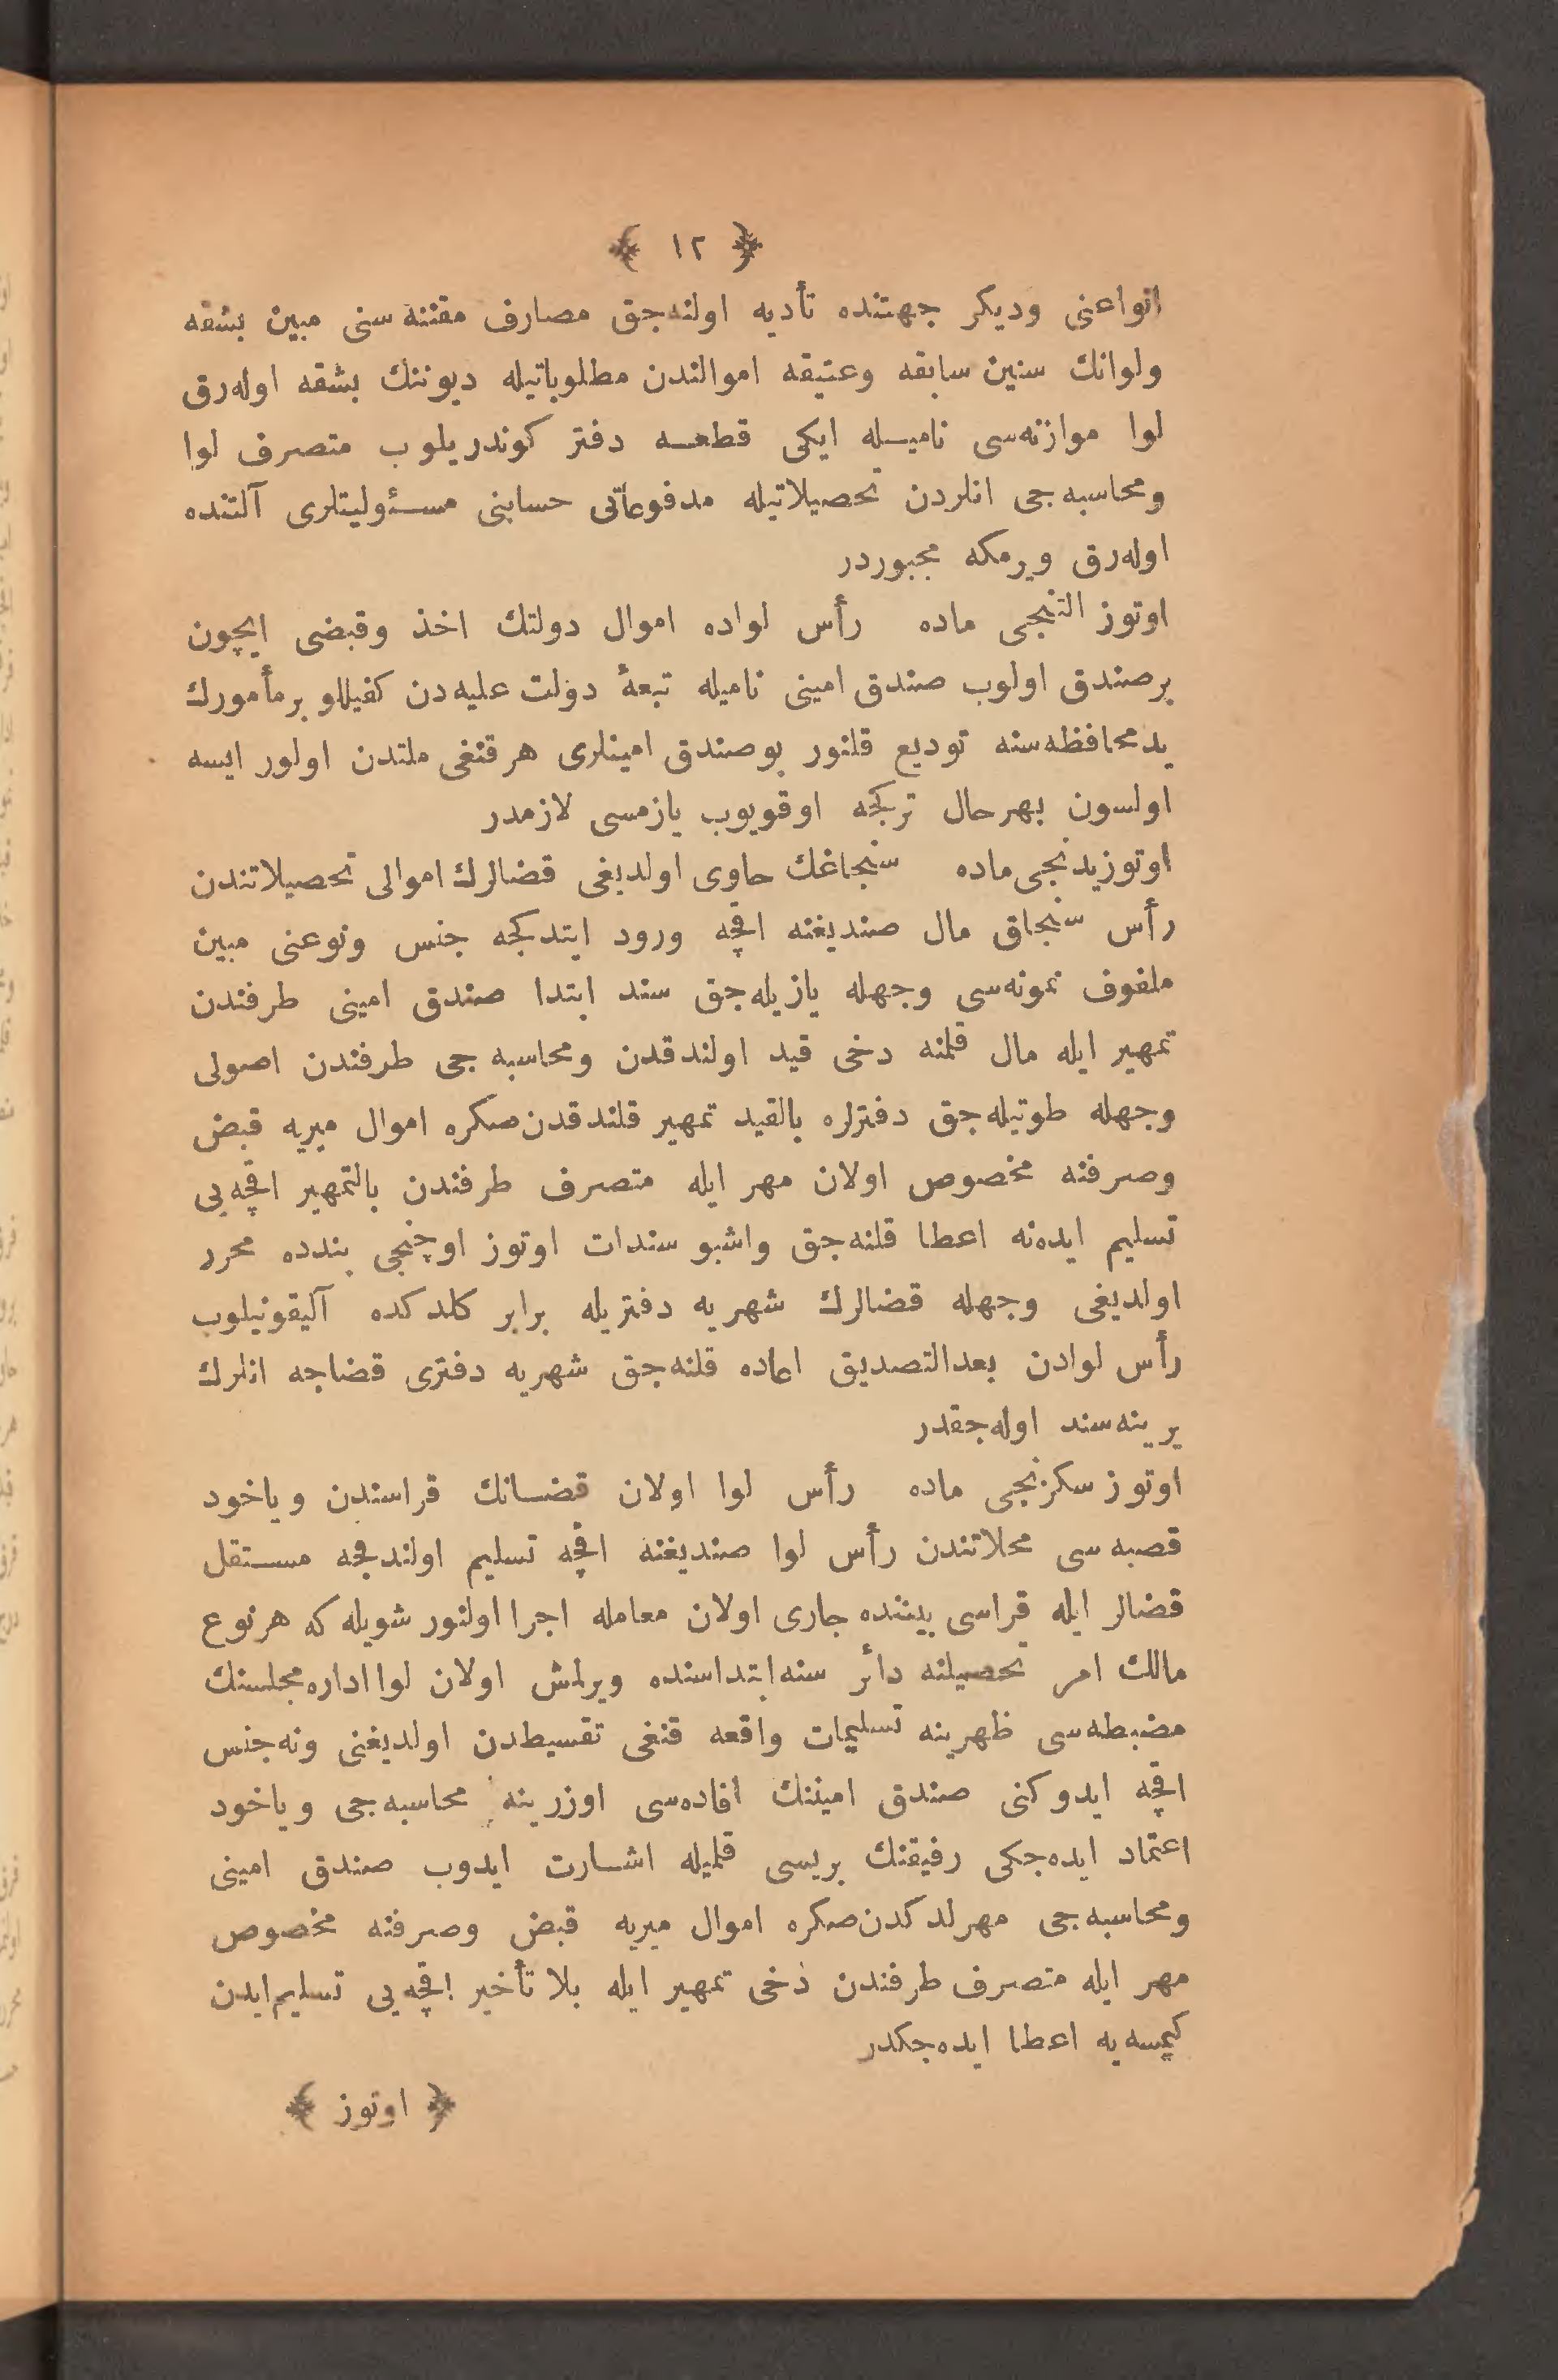 ﴿ ١٢ ﴾
انواعنی ودیكر جهتنده تأدیه اولنه‌جق مصارف مقننه‌سنی مبین بشقه
ولوانك سنین سابقه وعتیقه اموالندن مطلوباتیله دیوننك بشقه اوله‌رق
لوا موازنه‌سی نامیله ایكی قطعه دفتر كوندریلوب متصرف لوا
ومحاسبه‌جی انلردن تحصیلاتیله مدفوعاتی حسابنی مسئولیتلری آلتنده
اوله‌رق ویرمكه مجبوردر
اوتوز التنجی ماده رأس لواده اموال دولتك اخذ وقبضی ایچون
برصندق اولوب صندق امینی نامیله تبعهٔ دولت علیه‌دن كفیللو برمأمورك
یدمحافظه‌سنه تودیع قلنور بوصندق امینلری هرقنغی ملتدن اولور ایسه
اولسون بهرحال تركجه اوقویوب یازمسی لازمدر
اوتوزیدنجی ماده سنجاغك حاوی اولدیغی قضالرك اموالی تحصیلاتندن
رأس سنجاق مال صندیغنه اقچه ورود ایتدكجه جنس ونوعنی مبین
ملفوف نمونه‌سی وجهله یازیله‌جق سند ابتدا صندق امینی طرفندن
تمهیر ایله مال قلمنه دخی قید اولندقدن ومحاسبه‌جی طرفندن اصولی
وجهله طوتیله‌جق دفترلره بالقید تمهیر قلندقدن‌صكره اموال میریه قبض
وصرفنه مخصوص اولان مهر ایله متصرف طرفندن بالتمهیر اقچه‌یی
تسلیم ایده‌نه اعطا قلنه‌جق واشبو سندات اوتوز اوچنجی بندده محرر
اولدیغی وجهله قضالرك شهریه دفتریله برابر كلدكده آلیقونیلوب
رأس لوادن بعدالتصدیق اعاده قلنه‌جق شهریه دفتری قضاجه انلرك
یرینه‌سند اوله‌جقدر
اوتوز سكزنجی ماده رأس لوا اولان قضانك قراسندن ویاخود
قصبه‌سی محلاتندن رأس لوا صندیغنه اقچه تسلیم اولندقجه مستقل
قضالر ایله قراسی بیننده جاری اولان معامله اجرا اولنور شویله كه هرنوع
مالك امر تحصیلنه دائر سنه‌ابتداسنده ویرلمش اولان لوااداره‌مجلسنك
مضبطه‌سی ظهرینه تسلیمات واقعه قنغی تقسیطدن اولدیغنی ونه‌جنس
اقچه ایدوكنی صندق امیننك افاده‌سی اوزرینه محاسبه‌جی ویاخود
اعتماد ایده‌جكی رفیقنك بریسی قلمیله اشارت ایدوب صندق امینی
ومحاسبه‌جی مهرلدكدن‌صكره اموال میریه قبض وصرفنه مخصوص
مهر ایله متصرف طرفندن دخی تمهیر ایله بلا تأخیر اقچه‌یی تسلیم‌ایدن
كیمسه‌یه اعطا ایده‌جكدر
﴿ اوتوز ﴾